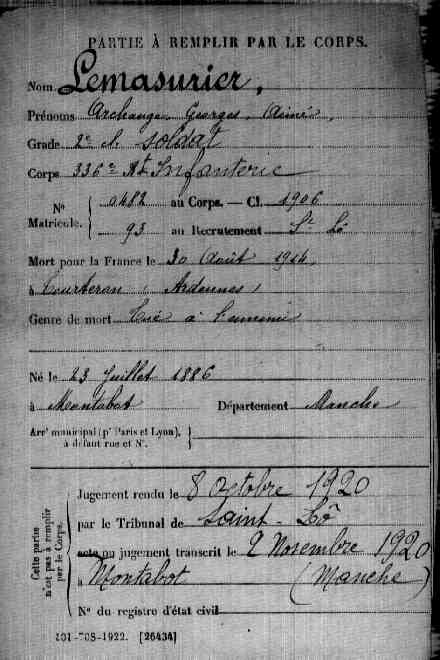 PARTIE À REMPLIR PAR LE CORPS.
Nom Lemasurier,
Prénoms Archange, Georges, Aimé,
Grade 2e Cl. soldat
Corps 336e Rt Infanterie
No Matricule. { 0482 au Corps. — Cl. 1906
93 au Recrutement St Lô
Mort pour la France le 30 Août 1914,
à (Ardennes)
Genre de mort Tué à l'ennemi
Né le 23 Juillet 1886
à Montabot Département Manche
Arrt municipal (pr Paris et Lyon), à défaut rue et No. }
Cette partie n'est pas à remplir par le Corps. {
Jugement rendu le 8 Octobre 1920
par le Tribunal de Saint-Lô
acte ou jugement transcrit le 2 Novembre 1920
à Montabot (Manche)
No du registre d'état civil
101-708-1922. [26434]